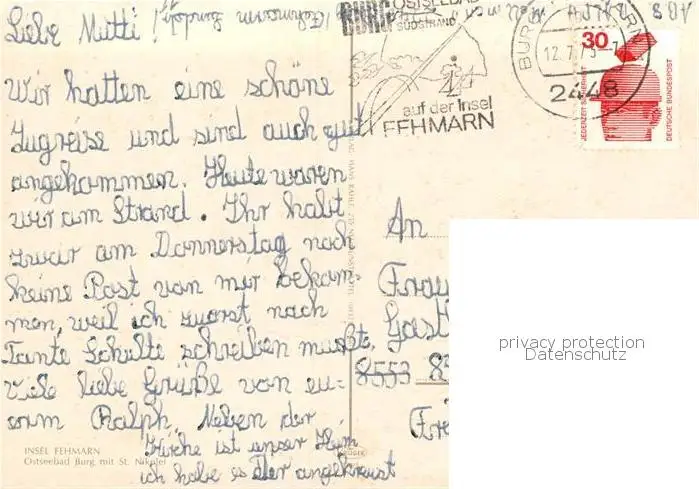 Liebe Mutti!
Wir hatten eine schöne
Zugreise und sind auch gut
angekommen. Heute waren
wir am Strand. Ihr habt
zwar am Donnerstag noch
keine Post von mir bekom-
men, weil ich zuerst nach
Tante Schulti schreiben mußte.
Viele liebe Grüße von eu-
erm Ralph. Neben der
Kirche ist unser Heim
ich habe es angekreuzt
INSEL FEHMARN
Ostseebad Burg mit St. Nikolei
BURG
OSTSEEBAD
SÜDSTRAND
auf der Insel
FEHMARN
BURG
12.7.
2448
30
JEDERZEIT SICHERHEIT
DEUTSCHE BUNDESPOST
An
Frau
Gast
8553
privacy protection
Datenschutz